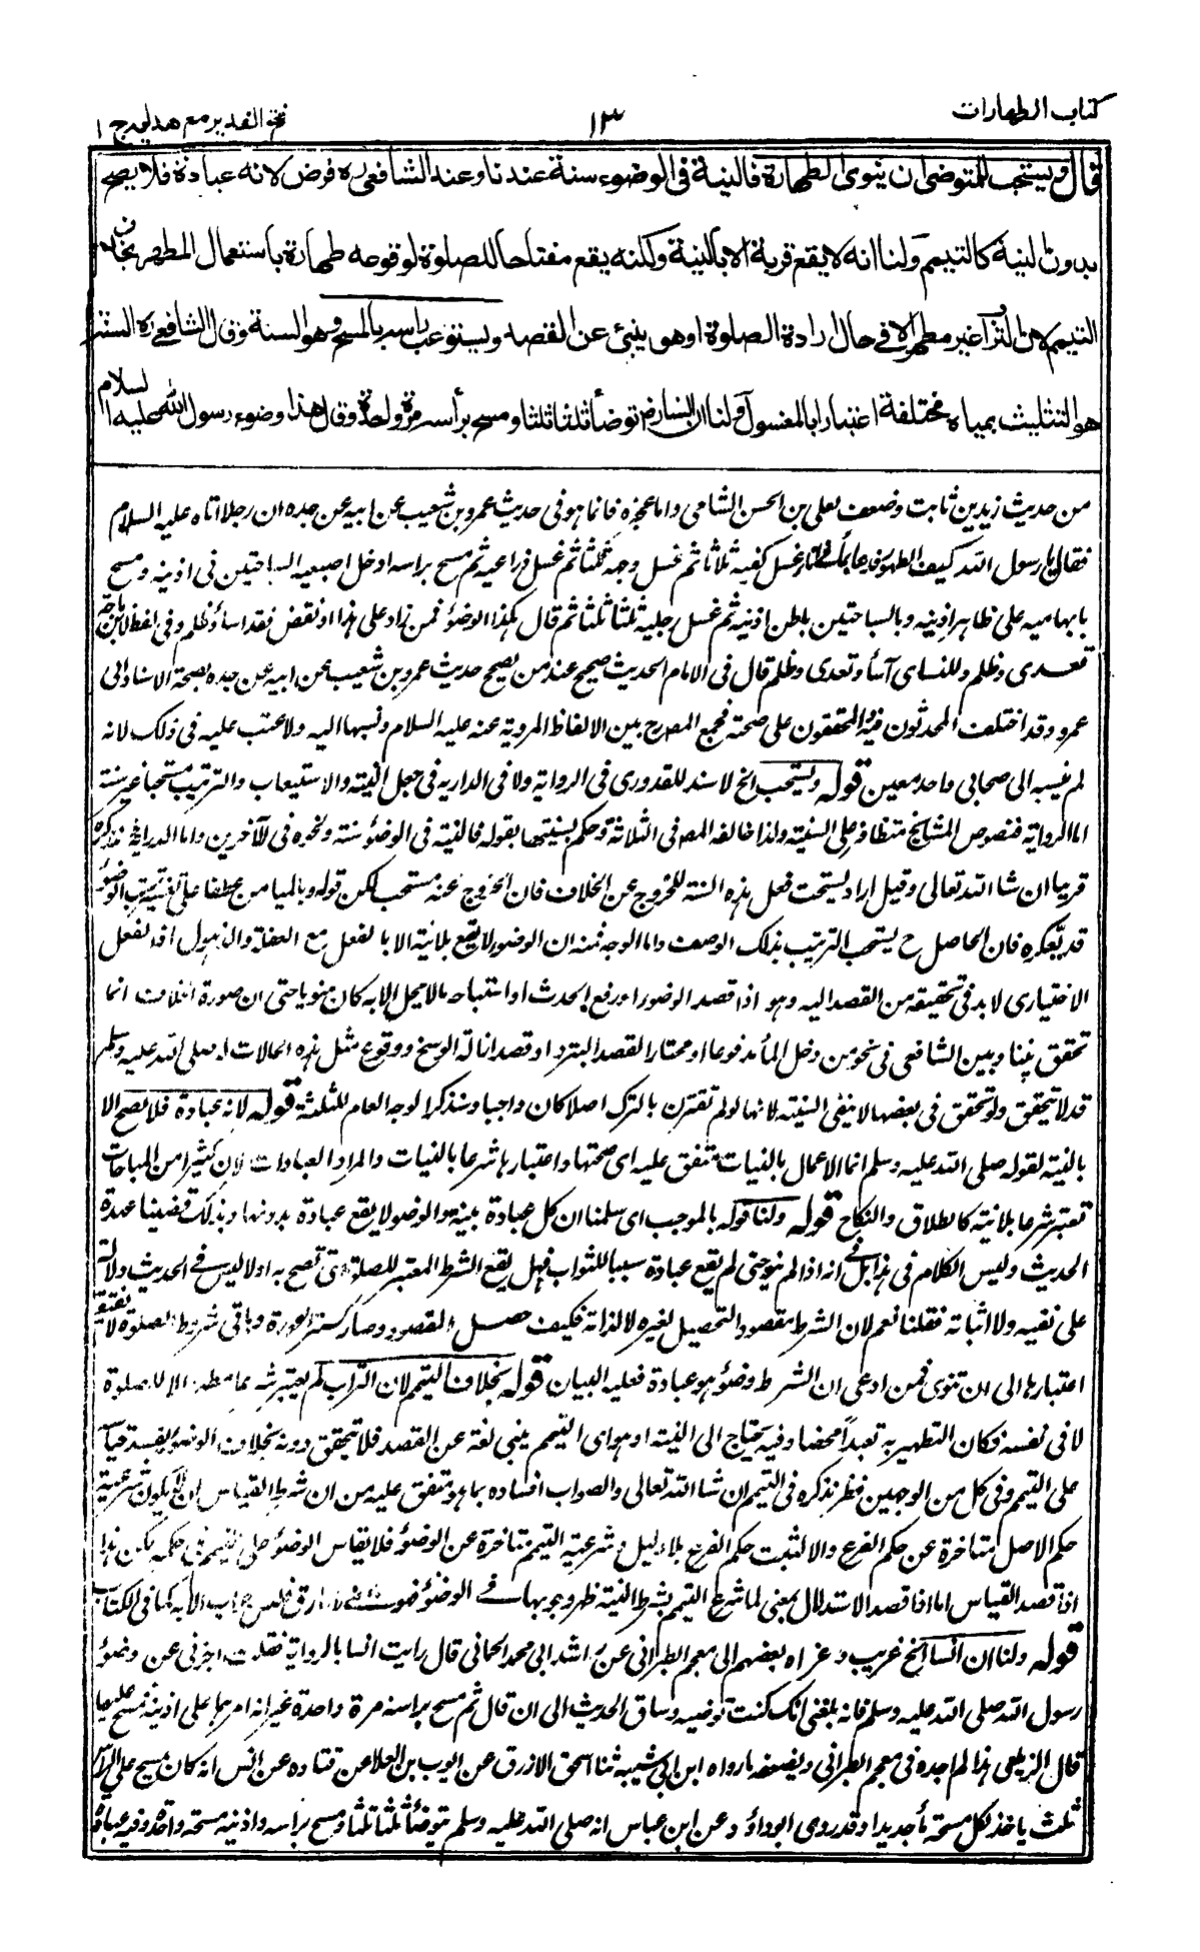 كتاب الطهارات
١٣
فتح القدير مع هدايه ج ١
قال ويستحب للمتوضى ان ينوى الطهارة فالنية فى الوضوء سنة عندنا وعند الشافعى ره فرض لانه عبادة فلا يصح
بدون النية كالتيمم ولنا انه لا يقع قربة الا بالنية ولكنه يقع مفتاحا للصلوة لوقوعه طهارة باستعمال المطهر بخلاف
التيمم لان التراب غير مطهر الا فى حال ارادة الصلوة او هو ينبئ عن القصد ويستوعب راسه بالمسح وهو السنة وقال الشافعى ره السنة
هو التثليث بمياه مختلفة اعتبارا بالمغسول ولنا ان انسا رض توضأ ثلثا ثلثا ومسح برأسه مرة واحدة وقال هذا وضوء رسول الله عليه السلام
من حديث زيد بن ثابت وضعف بعلى بن الحسن الشامى واما عجزه فانما هو فى حديث عمرو بن شعيب عن ابيه عن جده ان رجلا اتاه عليه السلام
فقال يا رسول الله كيف الطهور فدعا بماء فغسل كفيه ثلاثا ثم غسل وجهه ثلثا ثم غسل ذراعيه ثم مسح براسه ادخل اصبعيه السباحتين فى اذنيه ومسح
بابهاميه على ظاهر اذنيه وبالسباحتين باطن اذنيه ثم غسل رجليه ثلثا ثلثا ثم قال هكذا الوضوء فمن زاد على هذا او نقص فقد اساء وظلم وفى لفظ لابن ماجه
تعدى وظلم وللنساى اساء وتعدى وظلم قال فى الامام الحديث صحيح عند من يصحح حديث عمرو بن شعيب عن ابيه عن جده بصحة الاسناد الى
عمرو وقد اختلف المحدثون فيه والمحققون على صحته فجمع المصرح بين الالفاظ المروية عنه عليه السلام ونسبها اليه ولا عتب عليه فى ذلك لانه
لم ينسبه الى صحابى واحد معين قوله ويستحب الخ لا سند للقدورى فى الرواية ولا فى الدراية فى جعل النية والاستيعاب والترتيب مستحبا غير سنة
اما الرواية فنصوص المشايخ متظافرة على السنية ولذا خالفه المص فى الثلاثة وحكم بسنيتها بقوله فالنية فى الوضوء سنة ونحوه فى الآخرين واما الدراية فنذكره
قريبا ان شاء الله تعالى وقيل اراد يستحب فعل هذه السنة للخروج عن الخلاف فان الخروج عنه مستحب لكن قوله وبالميامن عطفا على تفسير ترتيب الوضوء
قد يعكره فان الحاصل ح يستحب الترتيب بذلك الوصف واما الوجه فمنه ان الوضوء لا يقع بلا نية الا بالفعل مع الغفلة والذهول اذ الفعل
الاختيارى لا بد فى تحقيقه من القصد اليه وهو اذا قصد الوضوء او رفع الحدث او استباحة ما لا يحل الا به كان منويا حتى ان صورة الخلاف انما
تتحقق بيننا وبين الشافعى فى نحو من دخل الماء مدفوعا او مختارا لقصد التبرد او قصد ازالة الوسخ ووقوع مثل هذه الحالات له صلى الله عليه وسلم
قد لا تتحقق ولو تحقق فى بعضها لا ينفى السنية لانها لو لم تقترن بالترك اصلا كان واجبا وسنذكر الوجه العام للثلثة قوله لانه عبادة فلا يصح الا
بالنية لقوله صلى الله عليه وسلم انما الاعمال بالنيات متفق عليه اى صحتها واعتبارها شرعا بالنيات والمراد العبادات لان كثيرا من المباحات
تعتبر شرعا بلا نية كالطلاق والنكاح قوله ولنا قوله بالموجب اى سلمنا ان كل عبادة بنية والوضوء لا يقع عبادة بدونها وبذلك قضينا عهدة
الحديث وليس الكلام فى هذا بل فى انه اذا لم ينو حتى لم يقع عبادة سببا للثواب فهل يقع الشرط المعتبر للصلوة حتى تصح به اولا ليس فى الحديث دلالة
على نفيه ولا اثباته فقلنا نعم لان الشرط مقصود التحصيل لغيره لا لذاته فكيف حصل المقصود وصار كستر العورة وباقى شروط الصلوة لا تفتقر
اعتبارها الى ان تنوى فمن ادعى ان الشرط وضوء هو عبادة فعليه البيان قوله بخلاف التيمم لان التراب لم يعتبر شرعا مطهرا الا للصلوة
لا فى نفسه فكان التطهير به تعبدا محضا وفيه يحتاج الى النية او هو اى التيمم ينبى لغة عن القصد فلا يتحقق دونه بخلاف الوضوء ففسد قياسه
على التيمم وفى كل من الوجهين نظر نذكره فى التيمم ان شاء الله تعالى والصواب افساده بما هو متفق عليه من ان شرط القياس ان لا يكون شرعية
حكم الاصل متاخرة عن حكم الفرع والا لثبت حكم الفرع بلا دليل وشرعية التيمم متاخرة عن الوضوء فلا يقاس الوضوء على التيمم فى حكمه لكن هذا
اذا قصد القياس اما اذا قصد الاستدلال بمعنى لما شرع التيمم بشرط النية ظهر وجوبها فى الوضوء كما فى الكتاب
قوله ولنا ان انسا الخ غريب وعزاه بعضهم الى معجم الطبرانى عن راشد ابى محمد الحمانى قال رايت انسا بالزاوية فقلت اخبرنى عن وضوء
رسول الله صلى الله عليه وسلم فانه بلغنى انك كنت توضيه وساق الحديث الى ان قال ثم مسح براسه مرة واحدة غير انه امرها على اذنيه فمسح عليهما
قال الزيلعى هذا لم اجده فى معجم الطبرانى ويضعفه ما رواه ابن ابى شيبه ثنا اسحق الازرق عن ايوب بن العلا عن قتاده عن انس انه كان يمسح على الراس
ثلث ياخذ لكل مسحة ماء جديدا وقد روى ابو داؤد عن ابن عباس انه صلى الله عليه وسلم توضأ ثلثا ثلثا ومسح براسه واذنيه مسحة واحدة وفيه عباد